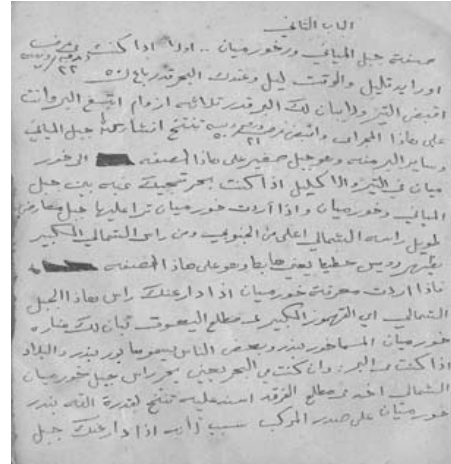 الباب الثاني
صفة جبل المياني وخور ميان .. اولا اذا كنت في
او رايد قليل والوقت ليل وعندك البحر قدر باع ٥٠
اقبض التير ولابيان لك البر قدر ثلاثه ازوام اتبع البر وانت
على هاذا المجراى واقبض تنتخ انشا الله جبل المياني
وساير البر منه وهو جبل صغير على هاذا الصفه الى خور
ميان في التير والاكليل اذا كنت بحر تحيفك عنه بين جبل
المياني وخور ميان واذا اردت خور ميان ترا عليها جبل معارض
طويل راسه الشمالي اعلى من الجنوبي ومن راس الشمالي الكبير
يظهر روس يعني وهو على هاذا الصفه
فاذا اردت معرفة خور ميان اذا دار عنك راس هاذا الجبل
الشمالي الكبير في مطلع اليعوق تبان لك مناره
خور ميان المسما خور بندر وبعض الناس يسموها بور بندر والبلاد
اذا كنت في البر وان كنت في البحر يعني بحر راس جبل خور ميان
الشمالي اخذ في مطلع الفرقد اسند عليه تنتخ لقدرة الله بندر
خور ميان على صدر المركب سبب اذا دار عنك جبل